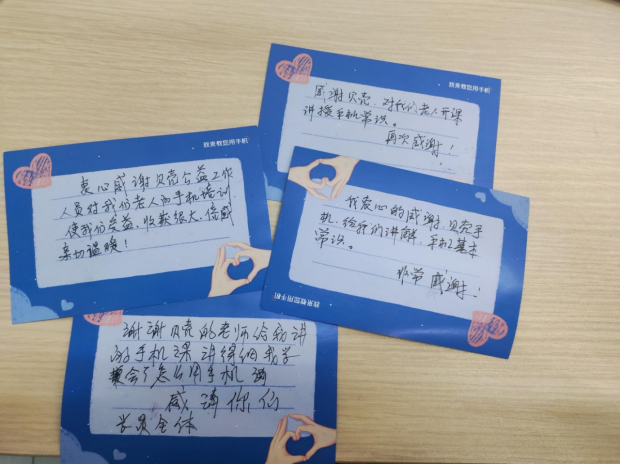 我来教您用手机
感谢贝壳,对我们老人开课
讲授手机常识。
再次感谢!
我来教您用手机
衷心感谢贝壳公益工作
人员对我们老人的手机培训
使我们受益,收获很大,倍感
亲切温暖!
我衷心的感谢,贝壳手
机,给我们讲解,手机基本
常识。
非常感谢!
我来教您用手机
谢谢贝壳的老师给我讲
的手机课讲得细我学
会了怎么用手机
感谢你们
学员全体